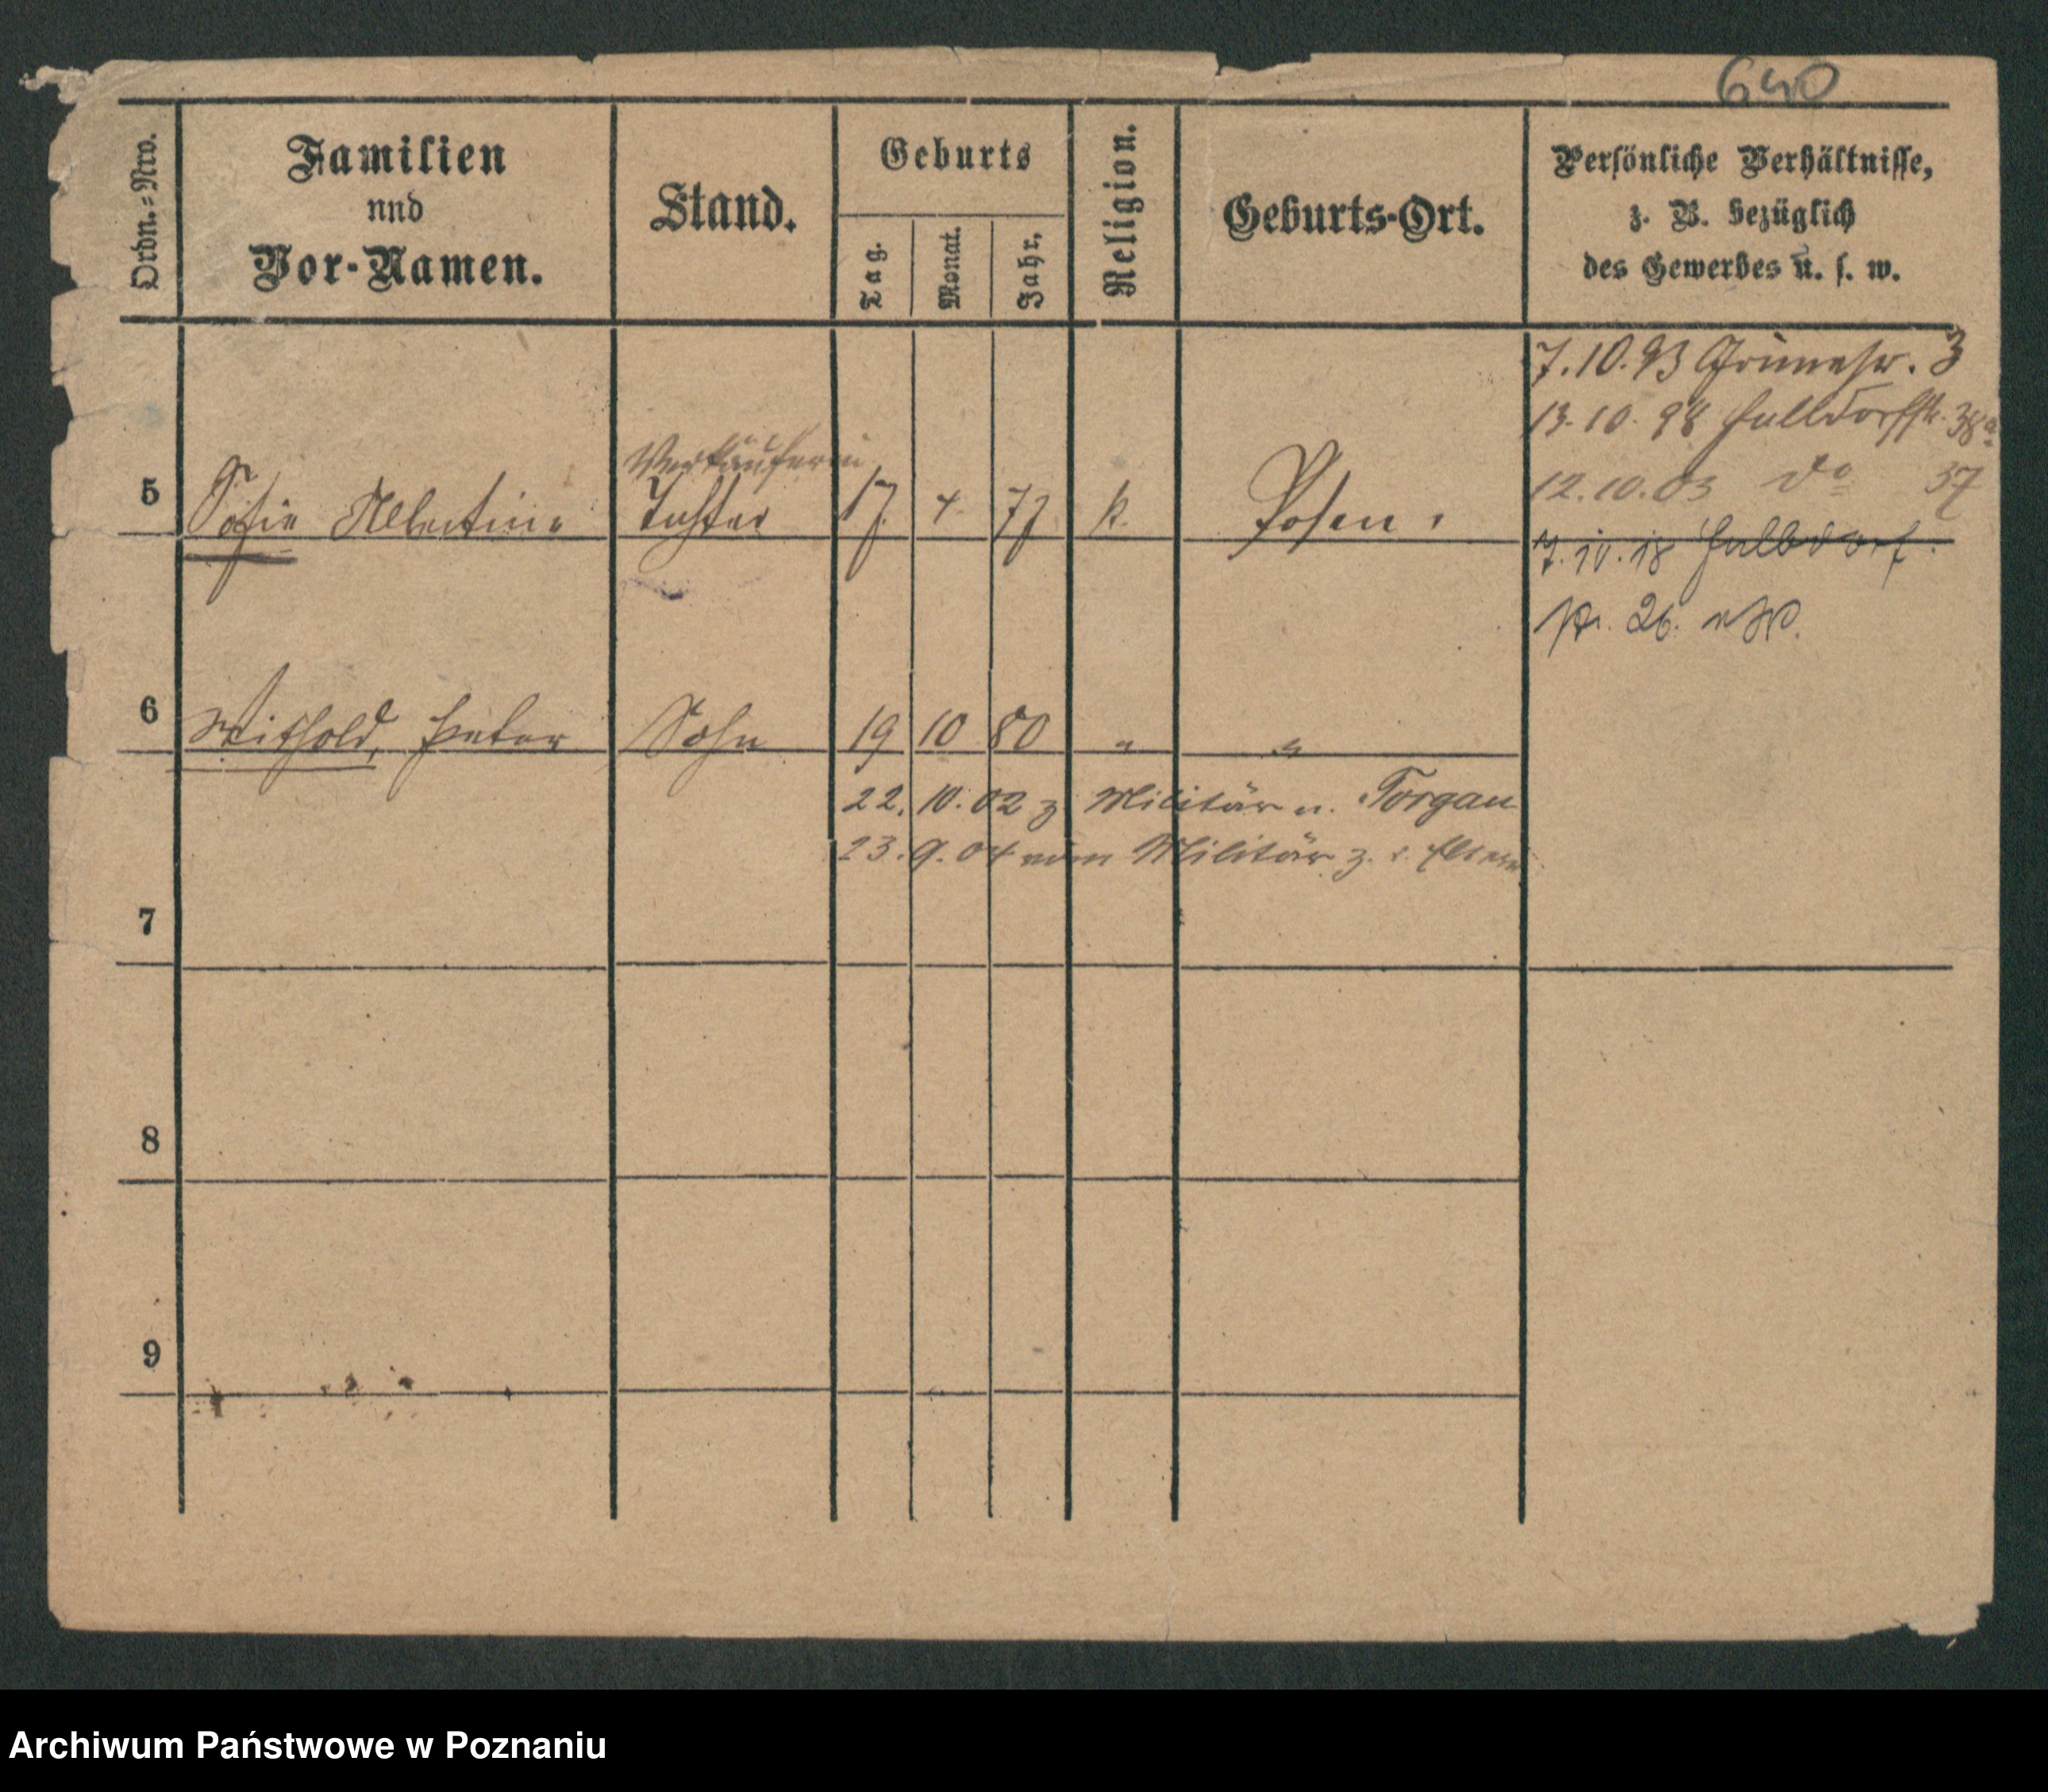 640
Ordn.=Nro.
Familien
nnd
Vor-Namen.
Stand.
Geburts
Tag.
Monat.
Jahr.
Religion.
Geburts-Ort.
Persönliche Verhältnisse,
z. B. bezüglich
des Gewerbes u. s. w.
7.10.93 3
13.10.98 Halbdorfstr. 38a
12.10.03 do 37
7.10.18 Halbdorf
str. 26.
Verkäuferin
5 Sofie Albertine Tochter 17. 4. 77 k. Posen
6 Withold, Peter Sohn 19 10 80 " "
22. 10. 02 z Militär n. Torgau
23. 9. 04 vom Militär z. d. Eltern
7
8
9
Archiwum Państwowe w Poznaniu